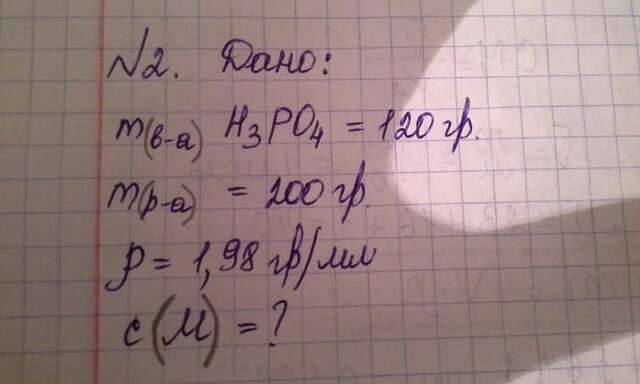 №2. Дано:
m(в-а) H₃PO₄ = 120 гр.
m(р-а) = 200 гр.
ρ = 1,98 гр/мл
с(М) = ?